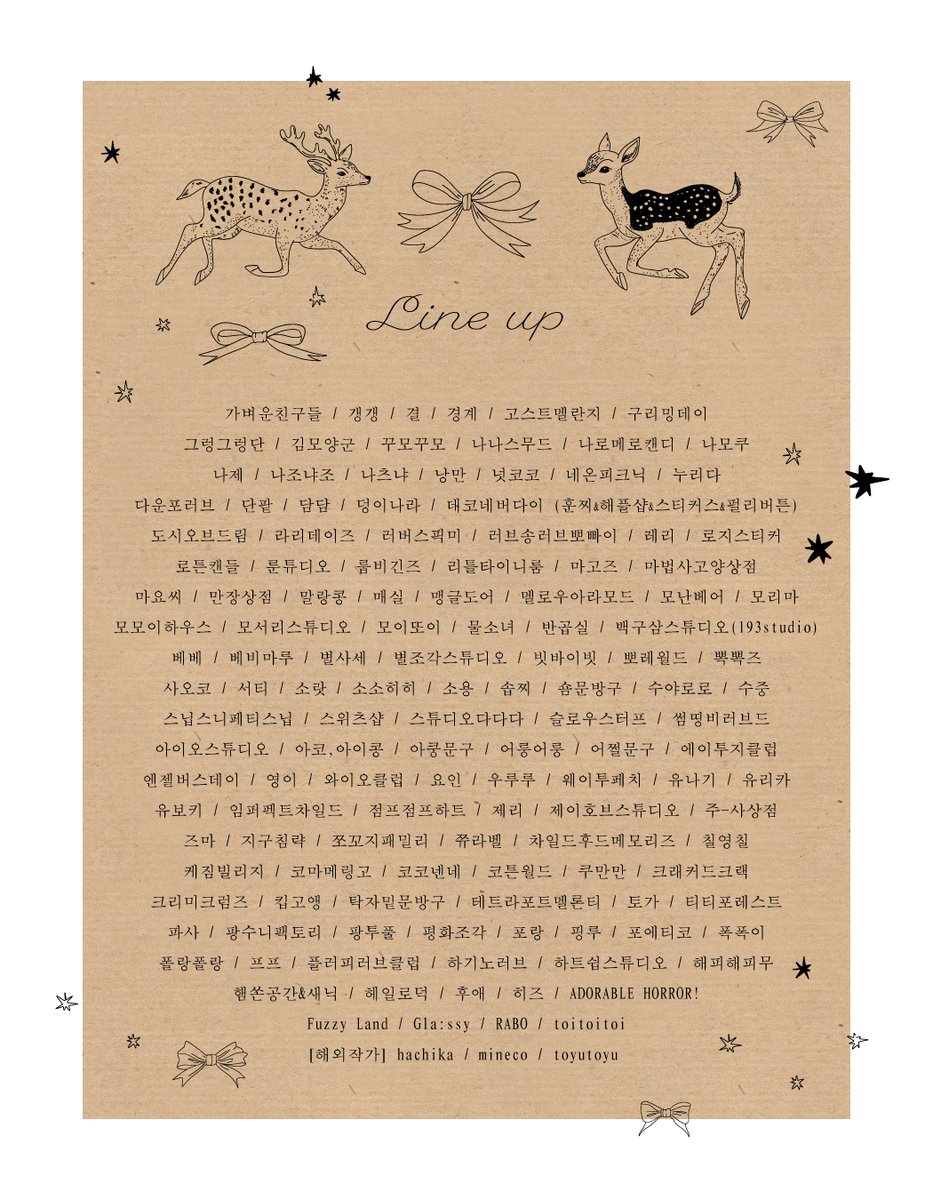 Line up
가벼운친구들 / 갱갱 / 결 / 경계 / 고스트멜란지 / 구리밍데이
그렁그렁단 / 김모양군 / 꾸모꾸모 / 나나스무드 / 나로메로캔디 / 나모쿠
나제 / 나조냐조 / 나츠냐 / 낭만 / 넛코코 / 네온피크닉 / 누리다
다운포러브 / 단팥 / 담담 / 덩이나라 / 대코네버다이 (훈찌&해플샵&스티커스&펄리버튼)
도시오브드림 / 라리데이즈 / 러버스픽미 / 러브송러브뽀빠이 / 레리 / 로지스티커
로튼캔들 / 룬튜디오 / 룹비긴즈 / 리틀타이니룸 / 마고즈 / 마법사고양상점
마요씨 / 만장상점 / 말랑콩 / 매실 / 맹글도어 / 멜로우아라모드 / 모난베어 / 모리마
모모이하우스 / 모서리스튜디오 / 모이또이 / 물소녀 / 반곱실 / 백구삼스튜디오(193studio)
베베 / 베비마루 / 별사세 / 별조각스튜디오 / 빗바이빗 / 뽀레월드 / 뽁뽁즈
사오코 / 서티 / 소랏 / 소소히히 / 소용 / 솝찌 / 숌문방구 / 수야로로 / 수중
스닙스니페티스닙 / 스위츠샵 / 스튜디오다다다 / 슬로우스터프 / 썸띵비러브드
아이오스튜디오 / 아코,아이콩 / 아쿵문구 / 어룽어룽 / 어쩔문구 / 에이투지클럽
엔젤버스데이 / 영이 / 와이오클럽 / 요인 / 우루루 / 웨이투페치 / 유나기 / 유리카
유보키 / 임퍼펙트차일드 / 점프점프하트 / 제리 / 제이호브스튜디오 / 주-사상점
즈마 / 지구침략 / 쪼꼬지패밀리 / 쮸라벨 / 차일드후드메모리즈 / 칠영칠
케짐빌리지 / 코마메링고 / 코코넨네 / 코튼월드 / 쿠만만 / 크래커드크랙
크리미크럼즈 / 킵고앵 / 탁자밑문방구 / 테트라포트멜론티 / 토가 / 티티포레스트
파사 / 팡수니팩토리 / 팡투풀 / 평화조각 / 포랑 / 핑루 / 포에티코 / 폭폭이
폴랑폴랑 / 프프 / 플러피러브클럽 / 하기노러브 / 하트쉽스튜디오 / 해피해피무
햄쏜공간&새닉 / 헤일로덕 / 후애 / 히즈 / ADORABLE HORROR!
Fuzzy Land / Gla:ssy / RABO / toitoitoi
[해외작가] hachika / mineco / toyutoyu